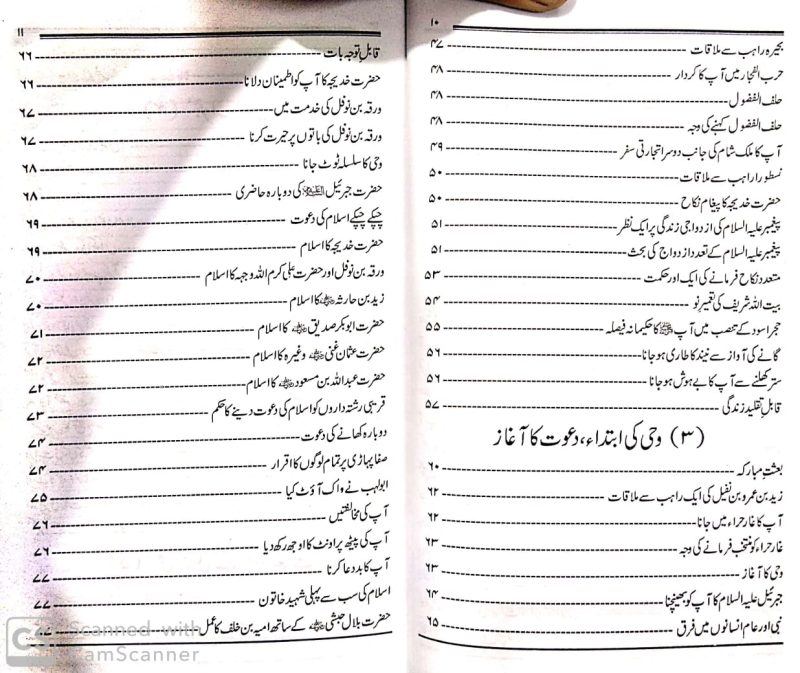 ۱۰
بحیرہ راہب سے ملاقات ۴۷
حرب الفجار میں آپ کا کردار ۴۸
حلف الفضول ۴۸
حلف الفضول کہنے کی وجہ ۴۸
آپ کا ملک شام کی جانب دوسرا تجارتی سفر ۴۹
نسطورا راہب سے ملاقات ۵۰
حضرت خدیجہ کا پیغام نکاح ۵۰
پیغمبر علیہ السلام کی ازدواجی زندگی پر ایک نظر ۵۱
پیغمبر علیہ السلام کے تعدد ازدواج کی بحث ۵۱
متعدد نکاح فرمانے کی ایک اور حکمت ۵۳
بیت اللہ شریف کی تعمیر نو ۵۴
حجر اسود کے تنصب میں آپ ﷺ کا حکیمانہ فیصلہ ۵۵
گانے کی آواز سے نیند کا طاری ہو جانا ۵۶
ستر کھلنے سے آپ کا بے ہوش ہو جانا ۵۶
قابل تقلید زندگی ۵۷
(۳) وحی کی ابتداء، دعوت کا آغاز
بعثت مبارکہ ۶۰
زید بن عمرو بن نفیل کی ایک راہب سے ملاقات ۶۲
آپ کا غار حراء میں جانا ۶۲
غار حراء کو منتخب فرمانے کی وجہ ۶۳
وحی کا آغاز ۶۳
جبرئیل علیہ السلام کا آپ کو بھینچنا ۶۴
نبی اور عام انسانوں میں فرق ۶۵
۱۱
قابل توجہ بات ۶۶
حضرت خدیجہ کا آپ کو اطمینان دلانا ۶۶
ورقہ بن نوفل کی خدمت میں ۶۷
ورقہ بن نوفل کی باتوں پر حیرت کرنا ۶۷
وحی کا سلسلہ ٹوٹ جانا ۶۸
حضرت جبرئیل علیہ السلام کی دوبارہ حاضری ۶۸
چپکے چپکے اسلام کی دعوت ۶۹
حضرت خدیجہ کا اسلام ۶۹
ورقہ بن نوفل اور حضرت علی کرم اللہ وجہہ کا اسلام ۷۰
زید بن حارثہ ؓ کا اسلام ۷۰
حضرت ابوبکر صدیق ؓ کا اسلام ۷۱
حضرت عثمان غنی ؓ وغیرہ کا اسلام ۷۲
حضرت عبداللہ بن مسعود ؓ کا اسلام ۷۲
قریبی رشتہ داروں کو اسلام کی دعوت دینے کا حکم ۷۳
دوبارہ کھانے کی دعوت ۷۴
صفا پہاڑی پر تمام لوگوں کا اقرار ۷۴
ابولہب نے واک آؤٹ کیا ۷۵
آپ کی مخالفتیں ۷۶
آپ کی پیٹھ پر اونٹ کا اوجھ رکھ دیا ۷۶
آپ کا بددعا کرنا ۷۷
اسلام کی سب سے پہلی شہید خاتون ۷۷
حضرت بلال حبشی ؓ کے ساتھ امیہ بن خلف کا عمل
CS Scanned with
CamScanner